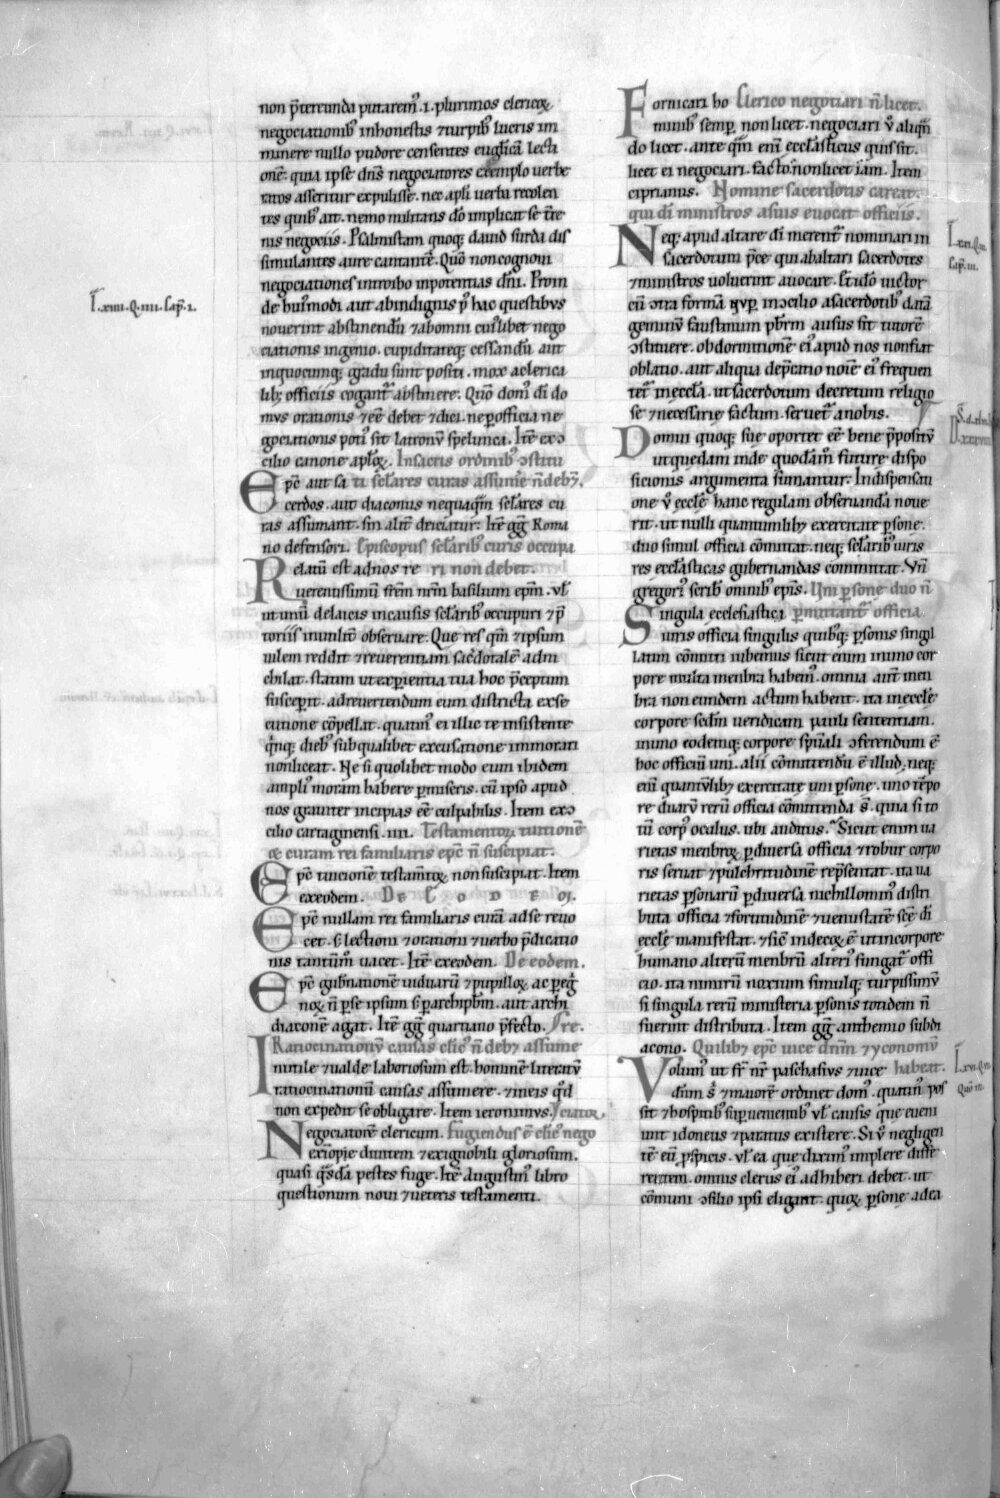 non p̄tereunda putarem᷒ .i. plurimos clericoꝝ
negociationib᷒ inhonestis ⁊ turpib᷒ lucris im
minere nullo pudore censentes euglicā lecti
onē. quia ipse dn̄s negociatores exemplo uerbe
ratos asseritur expulisse. nec apli uerba recolen
tes quib᷒ ait. nemo militans dō implicat se t̄re
nis negociis. Psalmistam quoq; dauid surda dis
simulantes aure cantantē. Quō non cognoui
negociationes introibo in potentias dn̄i. Proin
de hui᷒modi aut ab indignis p̄ hac questibus
nouerint abstinendū ⁊ ab omni cui᷒libet nego
ciationis ingenio. cupiditateq; cessandū aut
in quocumq; gradu sunt positi. mox a clerica
lib; officiis cogant᷑ abstinere. Quō dom᷒ dī do
mus orationis ⁊ eē debet ⁊ dici. ne ꝑ officia ne
gociationis poti᷒ sit latronū spelunca. Itē ex ↄ
cilio canone aplꝝ. In sacris ordinib᷒ ↄstitu
Epc̄ aut sa ti seclares curas assumē n̄ deb;.
cerdos. aut diaconus nequaq̄m seclares cu
ras assumant. sin alit̄ deiciatur. Itē gg̅ Roma
no defensori. Episcopus seclarib᷒ curis occupa
Relatū est ad nos re ri non debet.
uerentissimū frēm nrm̄ basilium epm̄. ul᷒
ut unū de laicis in causis seclarib᷒ occupari ⁊ p̄
toriis inutilit̄ obseruare. Que res qm̄ ⁊ ipsum
uilem reddit ⁊ reuerentiam sacdotalē adni
chilat. statim ut experientia tua hoc p̄ceptum
susceperit. ad reuertendum eum districta exse
cutione cōpellat. quatin᷒ ei illic te insistente
q̄nq; dieb᷒ sub qualibet excusatione immorari
non liceat. Ne si quolibet modo eum ibidem
ampli᷒ moram habere ꝑmiseris. cū ipso apud
nos grauiter incipias eē culpabilis. Item ex ↄ
cilio cartaginensi .iiii. Testamentoꝝ tuitionē
⁊ curam rei familiaris epc̄ n̄ suscipiat.
Epc̄ tuicionē testam̄toꝝ non suscipiat. Item
ex eodem. De Codeoi.
Epc̄ nullam rei familiaris curā ad se reuo
cet. s; lectioni ⁊ orationi ⁊ uerbo p̄dicatio
nis tantum᷒ uacet. Itē ex eodem. De eodem.
Epc̄ gub̄nationē uiduarū ⁊ pupilloꝝ. ac peg̅
noꝝ n̄ ꝑ se ipsum s; ꝑ archipb̄rm. aut archi
diaconē agat. Itē gg̅ quartano p̄fecto. Fre.
Ratiocinationū causas clic᷒ n̄ deb; assume
Inutile ⁊ ualde laboriosum est. hominē literatū
ratiocinationū causas assumere. ⁊ in eis q̄d
non expedit se obligare. Item ieronimus.
Negociatorē clericum. Fugiendus ē clic᷒ nego ciator.
⁊ ex inopie diuitem ⁊ ex ignobili gloriosum.
quasi q̄sdā pestes fuge. Itē Augustin᷒ libro
questionum noui ⁊ ueteris testamenti.
L̄ .xiiii. Q. iiii. Cap. 1.
Fornicari ho Clerico negotiari n̄ licet.
minib᷒ semp̄ non licet. negociari ū aliqn̄
do licet. ante q̄m eni᷒ ecclāsticus quis sit.
licet ei negociari. facto. n̄ non licet iam. Item
ciprianus. Nomine sacerdotis careat.
qui dī ministros a suis euocat officiis.
Neq; apud altare dī merent᷑ nominari in
sacerdotum p̄ce qui ab altari sacerdotes
⁊ ministros uoluerint auocare. Et idō uictor
cū ↄtra formā nup̄ in ↄcilio a sacerdotib᷒ datā
geminū faustinum pb̄rm ausus sit tutorē
ↄstituere. ob dormitionē ei᷒ apud nos non fiat
oblatio. aut aliqua dep̄catio noīe ei᷒ frequen
tet᷑ in eccla. ut sacerdotum decretum religio
se ⁊ necessarie factum. seruet᷑ a nobis.
Domui quoq; sue oportet eē bene p̄positū
ut quedam inde quodam᷒ future dispo
sicionis argumenta sumantur. In dispensati
one ū ecclē hanc regulam obseruanda noue
rit. ut nulli quantumlib; exercitate ꝑsone.
duo simul officia cōmittat. neq; seclarib᷒ uiris
res ecclasticas gubernandas committat. Vn̄
gregori᷒ scrib᷒ omnib᷒ epis̄. Uni ꝑsone duo n̄
Singula ecclesiastica ꝑmittant᷑ officia
iuris officia singulis quibq; ꝑsonis singl
latim cōmitti iubemus sicut enim in uno cor
pore multa menbra habem᷒. omnia aut̄ men
bra non eundem actum habent. ita in ecclē
corpore sedm̄ ueridicam pauli sententiam.
in uno eodemq; corpore spūali ↄferendum ē
hoc officiū uni. alii cōmittendū ē illud. neq;
eni᷒ quantūlib; exercitate uni ꝑsone. uno tēpo
re duarū rerū officia cōmittenda s̄. quia si to
tū corp᷒ oculus. ubi auditus. Sicut enim ua
rietas menbroꝝ ꝑ diuersa officia ⁊ robur corpo
ris seruat ⁊ pulchritudinē rep̄sentat. ita ua
rietas ꝑsonarū ꝑ diuersa nichilomin᷒ distri
buta officia ⁊ fortitudinē ⁊ uenustatē scē dī
ecclē manifestat. ⁊ sic᷒ indecoꝝ ē ut in corpore
humano alterū menbrū alteri᷒ fungat᷑ offi
cio. ita nimirū noxium simulq; turpissimū
si singula rerū ministeria ꝑsonis totidem n̄
fuerint distributa. Item gg̅ anthemio subdi
acono. Quilib; epc̄ uice dn̄m ⁊ yconomū
Volum᷒ ut fr̄ nr̄ paschasius ⁊ uice habeat.
dn̄m s; ⁊ maiorē ordinet dom᷒. quatin᷒ pos
sit ⁊ hospitib᷒ superuenientib᷒ ul᷒ causis que eueni
unt idoneus ⁊ paratus existere. Si ū negligen
tē eū p̄spicis. ul᷒ ea que dixim᷒ implere diffe
rentem. omnis clerus ei᷒ adhiberi debet. ut
cōmuni ↄsilio ipsi eligant. quoꝝ ꝑsone ad ea